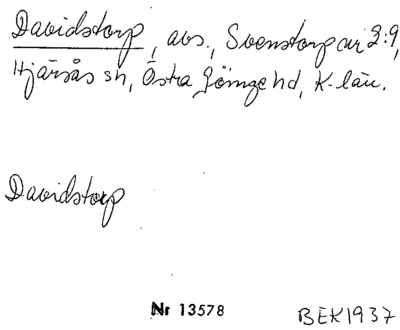 Davidstorp, avs., Svenstorp av 2:9,
Hjärsås sn, Östra Göinge hd, K-län.
Davidstorp
Nr 13578
BEK1937